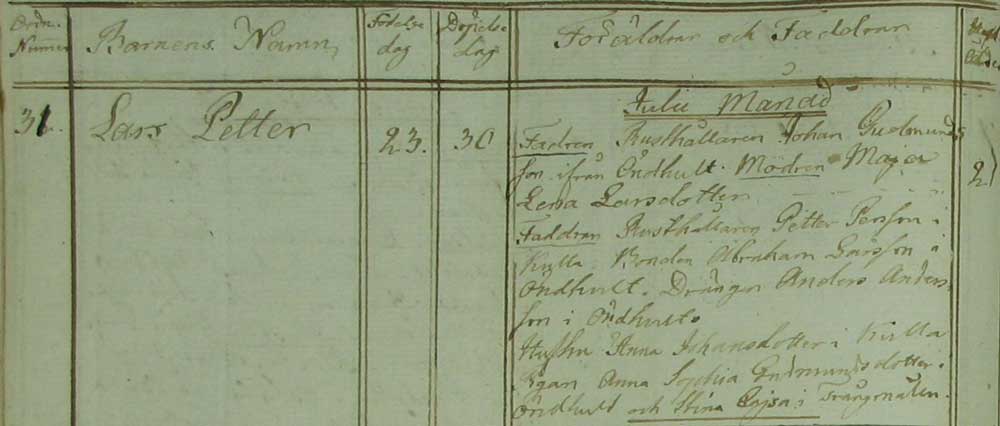 Ordn. Numer Barnens Namn, Födelse dag Döpelse dag Föräldrar och Faddrar
Julii Månad
31. Lars Petter 23. 30 Fadren Rusthållaren Johan Gudmunds
son ifrån Öndhult. Modren Maja 21
Lena Larsdotter
Faddran Rusthållaren Petter Persson i
Kulla Bonden Abraham Larsson i
Öndhult. Drängen Anders Anders
son i Öndhult
Hustru Anna Johansdotter i Kulla
Pigan Anna Sophia Gudmundsdotter i
Öndhult och Stina Cajsa i